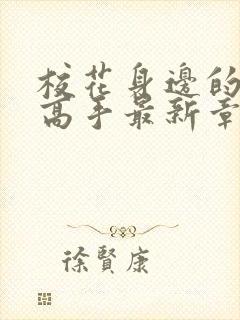 校花身邊的
高手最新章
徐賢康